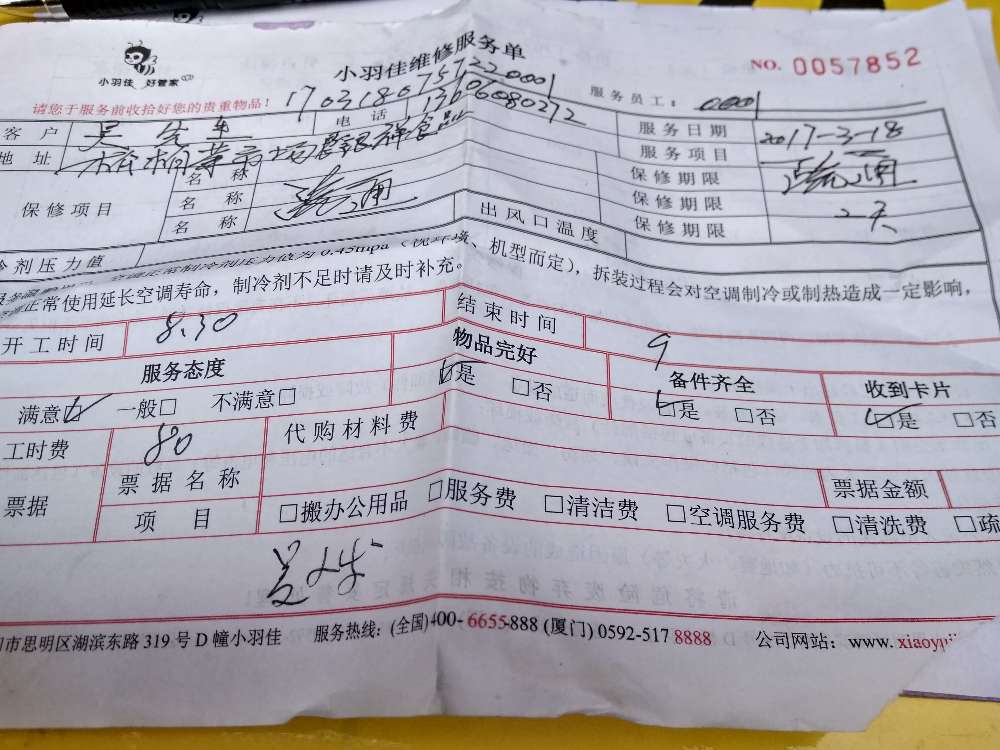 小羽佳 好管家
小羽佳维修服务单
NO. 0057852
请您于服务前收拾好您的贵重物品！
1703180757220001
服务员工： 0001
客 户 吴先生 电 话 13606080272 服务日期 2017-3-18
地 址 服务项目 疏通
保修项目 名 称 疏通 保修期限
名 称 保修期限 2天
名 称 保修期限
冷剂压力值 出风口温度
0.45mpa 机型而定），拆装过程会对空调制冷或制热造成一定影响，
正常使用延长空调寿命，制冷剂不足时请及时补充。
开工时间 8.30 结束时间 9
服务态度 物品完好 备件齐全 收到卡片
满意☑ 一般□ 不满意□ ☑是 □否 ☑是 □否 ☑是 □否
工时费 80 代购材料费
票据 票据名称 票据金额
项 目 □搬办公用品 □服务费 □清洁费 □空调服务费 □清洗费 □疏
市思明区湖滨东路 319 号 D 幢小羽佳 服务热线：(全国)400-6655-888 (厦门) 0592-517 8888 公司网站：www. xiaoyu